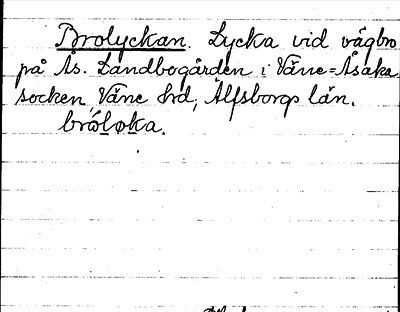 Brolyckan. Lycka vid vägbro
på Ås. Landbogården i Väne=Åsaka
socken, Väne hrd, Älfsborgs län.
brólọka.